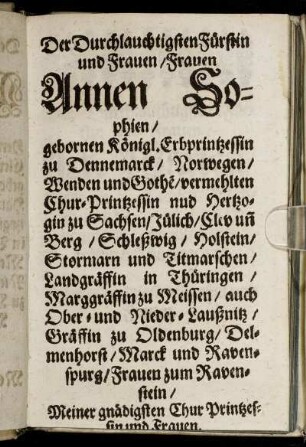 Der Durchlauchtigsten Fürstin
und Frauen / Frauen
Annen So-
phien /
gebornen Königl. Erbprintzessin
zu Dennemarck / Norwegen /
Wenden und Gothē / vermehlten
Chur-Printzessin nud Hertzo-
gin zu Sachsen / Jülich / Clev uñ
Berg / Schleßwig / Holstein /
Stormarn und Titmarschen /
Landgräffin in Thüringen /
Marggräffin zu Meissen / auch
Ober- und Nieder-Laußnitz /
Gräffin zu Oldenburg / Del-
menhorst / Marck und Raven-
spurg / Frauen zum Raven-
stein /
Meiner gnädigsten Chur Printzes-
sin und Frauen.